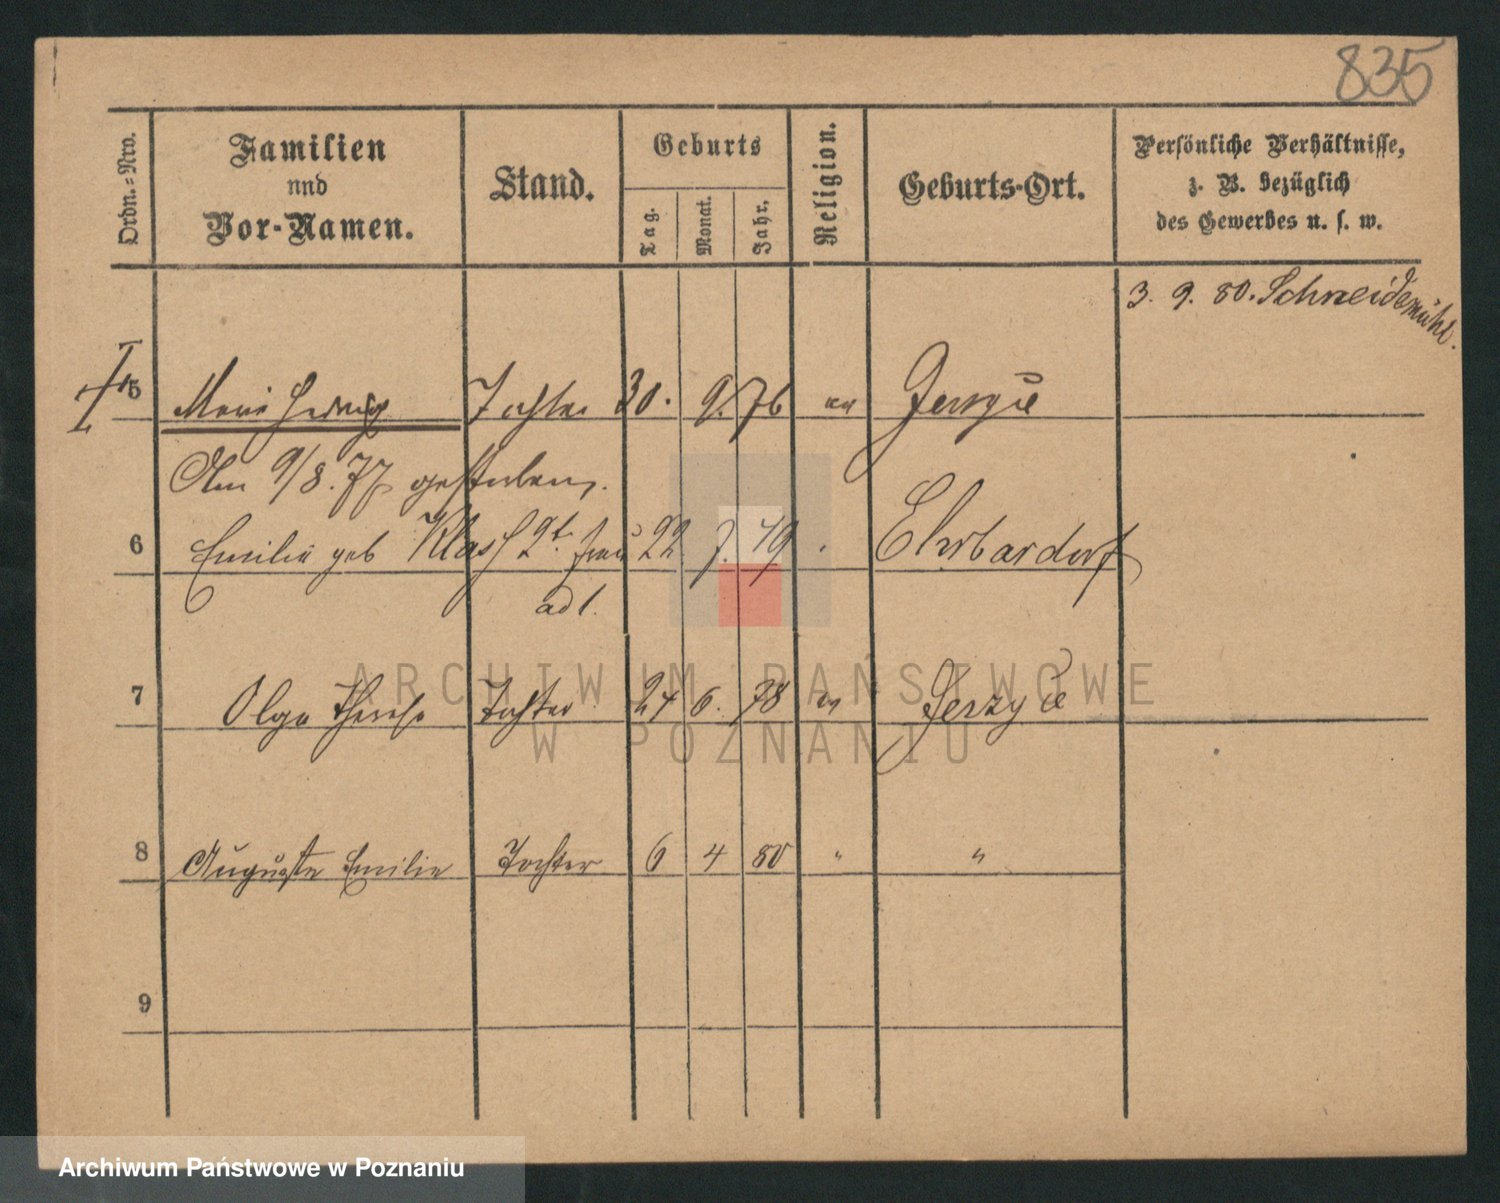 835
Ordn.-Nro.
Familien
und
Vor-Namen.
Stand.
Geburts
Tag.
Monat.
Jahr.
Religion.
Geburts-Ort.
Persönliche Verhältnisse,
z. B. bezüglich
des Gewerbes u. s. w.
3. 9. 80. Schneidemühl.
5 Marie Hedwig Tochter 30. 9. 76 Jerzyce
Am 9/8. 77 gestorben.
6 Emilie geb Klasf 2t. Frau 22 7. 49 Ehrbardorf
ad 1.
7 Olga Therese Tochter 24 6. 78 Jerzyce
8 Auguste Emilie Tochter 6 4 80 " "
9
ARCHIWUM PAŃSTWOWE
W POZNANIU
Archiwum Państwowe w Poznaniu